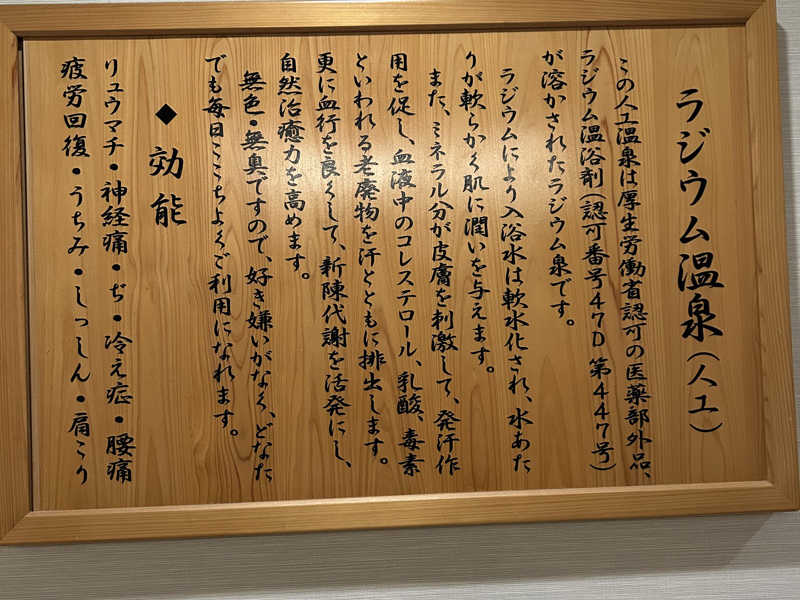 ラジウム温泉(人工)
この人工温泉は厚生労働省認可の医薬部外品、
ラジウム温浴剤(認可番号47D第447号)
が溶かされたラジウム泉です。
ラジウムにより入浴水は軟水化され、水あた
りが軟らかく肌に潤いを与えます。
また、ミネラル分が皮膚を刺激して、発汗作
用を促し、血液中のコレステロール、乳酸、毒素
といわれる老廃物を汗とともに排出します。
更に血行を良くして、新陳代謝を活発にし、
自然治癒力を高めます。
無色・無臭ですので、好き嫌いがなく、どなた
でも毎日ここちよくご利用になれます。
◆効能
リュウマチ・神経痛・ぢ・冷え症・腰痛
疲労回復・うちみ・しっしん・肩こり